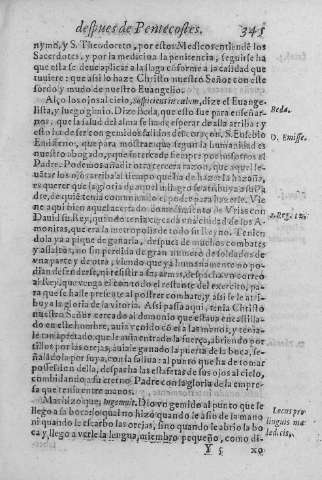 despues de Pentecostes. 345
nymo, y S. Theodoreto, por estos Medicos entiende los
Sacerdotes, y por la medicina la penitencia, seguirse ha
que esta se deue aplicar a la llaga cõforme a la calidad que
tuuiere: que assi lo haze Christo nuestro Señor con este
sordo y mudo de nuestro Euangelio.
Alço los ojos al cielo, suspiciens in cælum, dize el Euange-
lista, y luego gimio. Dize Beda, que esto fue para enseñar-
nos, que la salud del alma se ha de esperar de alla arriba: y
esto ha de ser con gemidos salidos del coraçon. S. Eusebio
Emisseno, que para mostrar que segun la humanidad es
nuestro abogado, rogando siempre por nosotros al
Padre. Podemos añadir otra tercera razon, que aquel le-
uatar los ojos arriba al tiempo que ha de hazer la hazaña,
es querer que la gloria de aquel milagro se atribuya a su Pa
dre, de quie tenia comunicado el poder para hazerle. Vie
ne aqui bien aquel acontecimiento de Vrias con
Dauid su Rey, quando tenia cercada vna ciudad de los A-
monitas, que era la metropolis de todo su Reyno. Tenien
dola ya a pique de ganarla, despues de muchos combates
y assaltos, no sin perdida de gran numero de soldados de
vna parte y de otra, viendo que ya humanamente no po-
dian defenderse, ni resistir a sus armas, despacha vn correo
al Rey, que venga el con todo el restante del exercito, pa-
ra que se halle presente al postrer combate, y assi se le atri-
buya la gloria de la vitoria. Assi passa aqui, tenia Christo
nuestro Señor cercado al demonio que estaua encastilla-
do en esse hombre, auia venido cõ el a las manos, y tenia-
le tan apretado, que le auia entrado la fuerça, abriendo por
tillos por las orejas, auiale ganado la puerta de la boca, se-
ñalandola por suya, con la saliua: al punto que ha de tomar
possession della, despacha las estafetas de sus ojos al cielo,
combidando a su eterno Padre con la gloria de la empre-
sa que tenia entre manos.
Mas hizo que, ingemuit. Dio vn gemido al punto que le
llego a la boca: lo que no hizo quando le asio de la mano
ni quando le escarbo las orejas, sino quando le abrio la bo
ca y llego a verle la lengua, miembro pequeño, como di-
Y 5 xo
Beda.
D. Emisse.
2. Reg. 12.
Locus pro
linguis ma
ledicis.